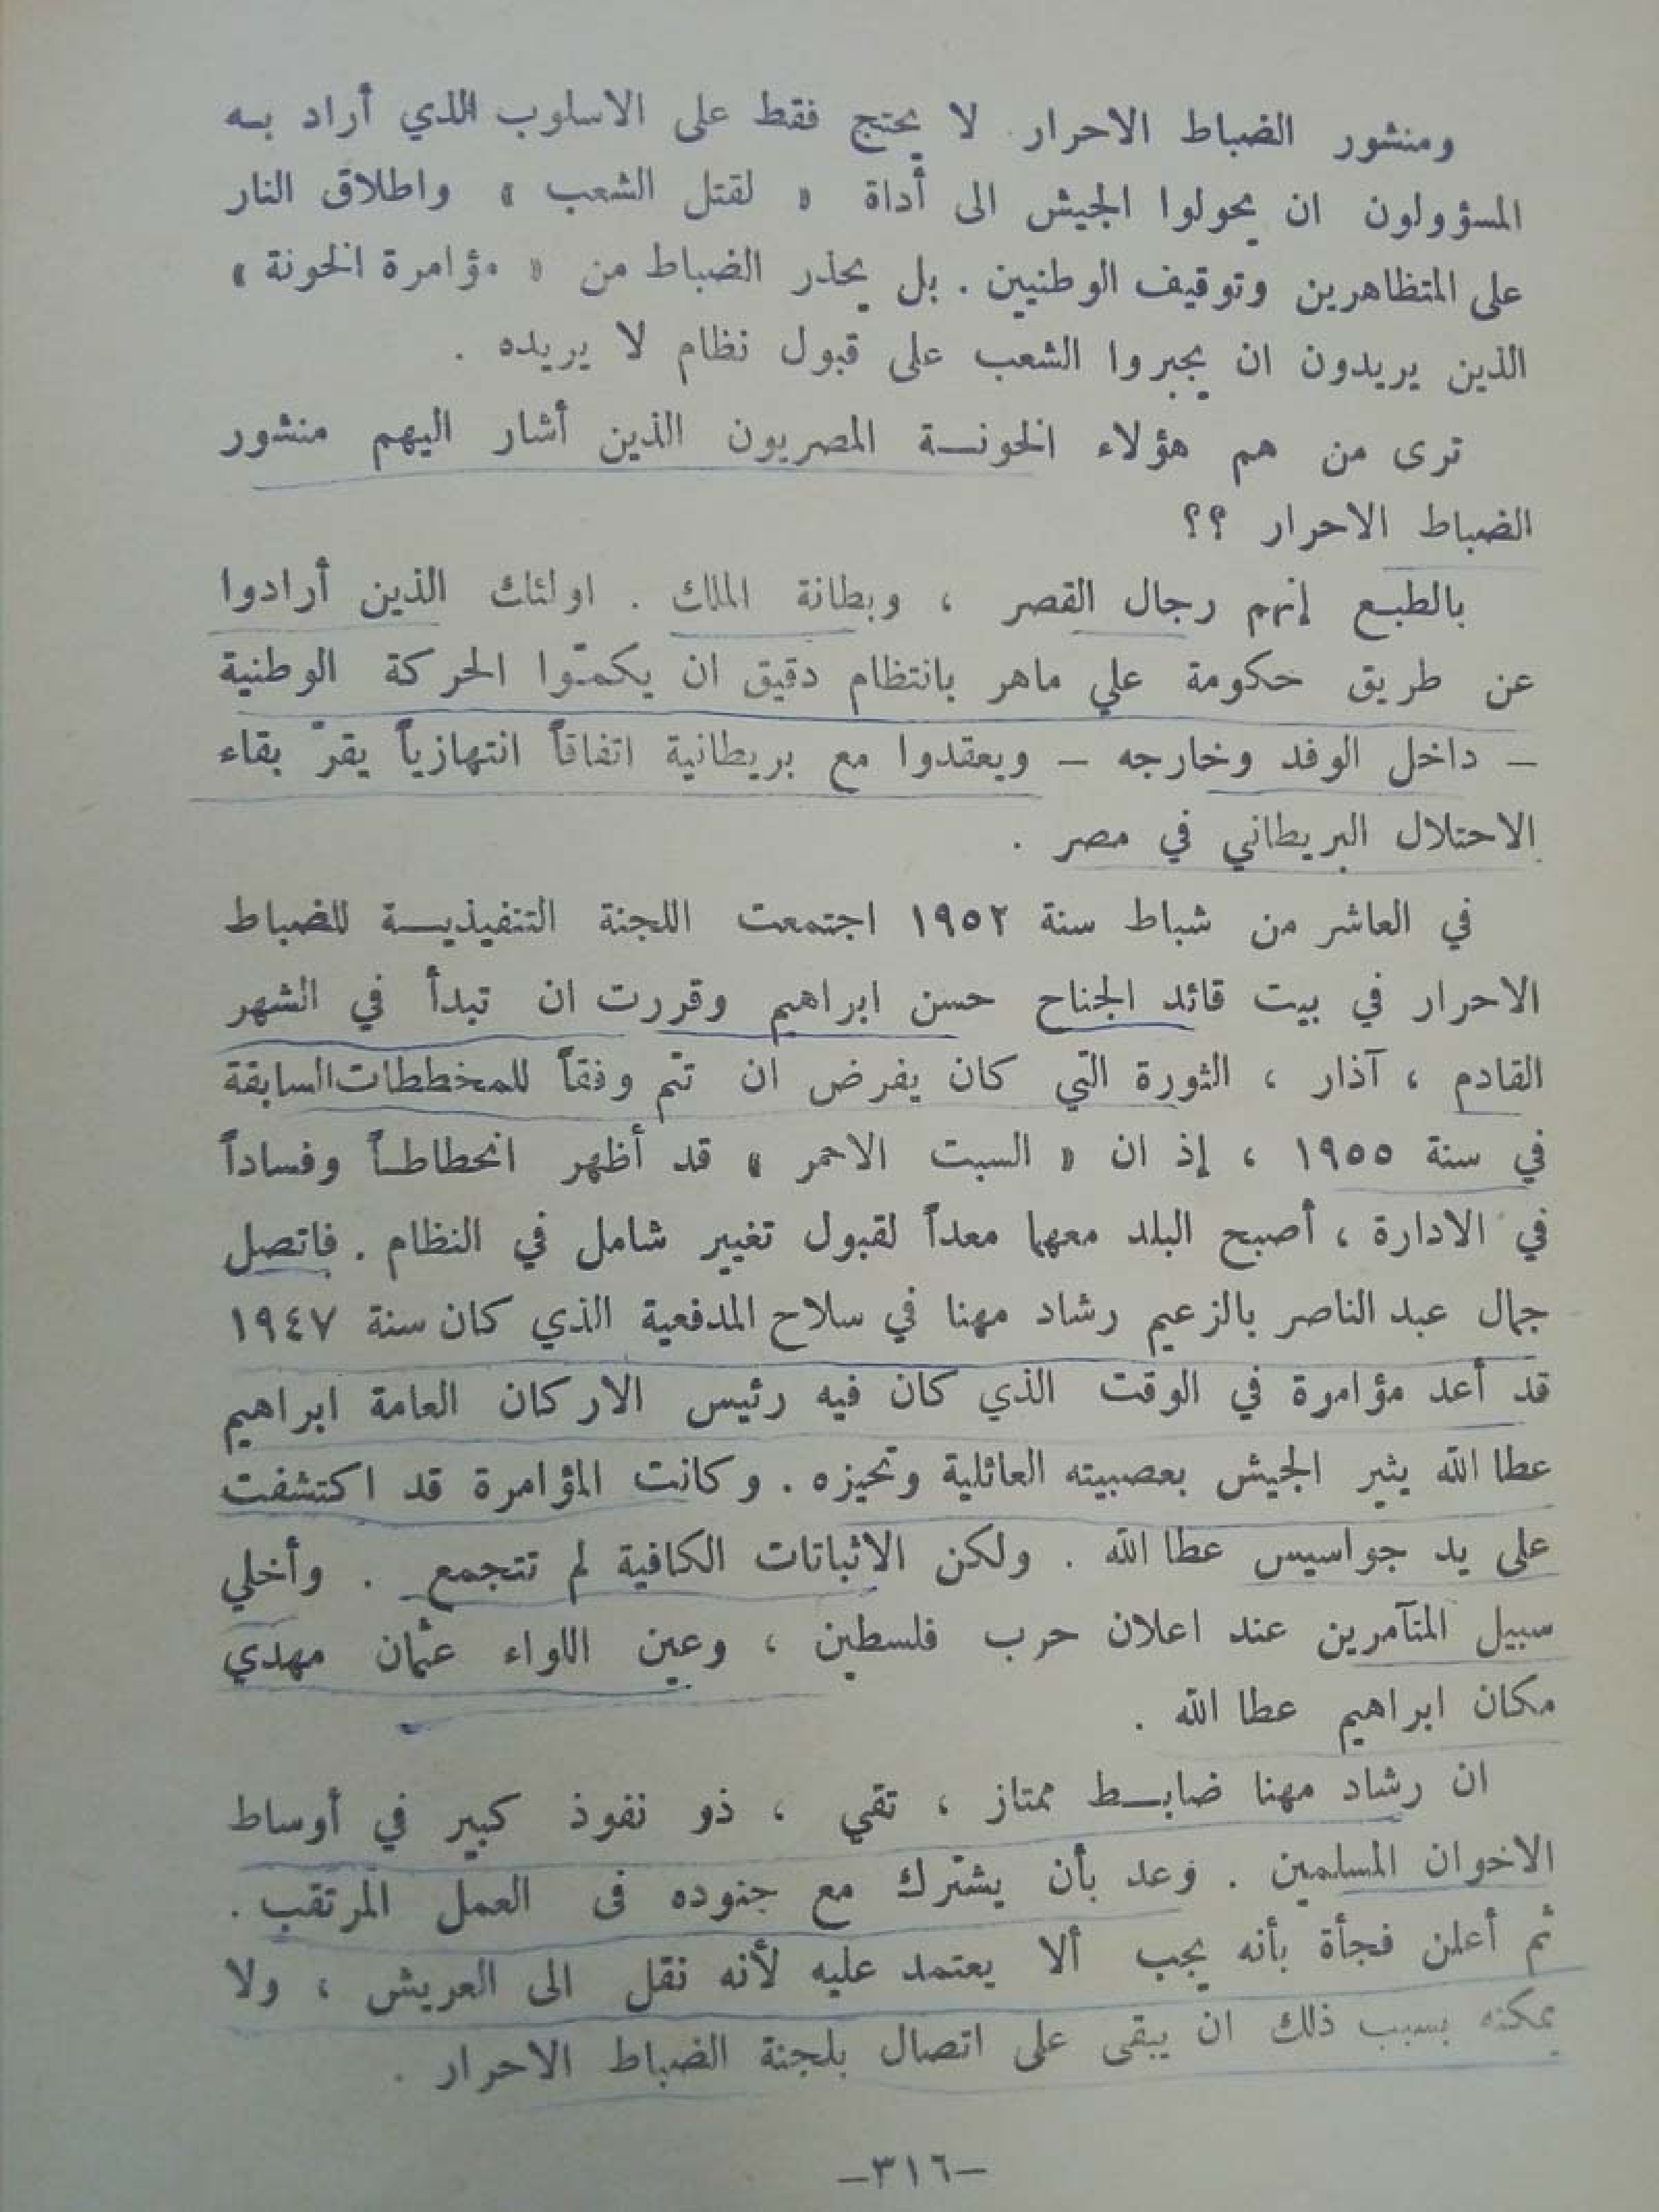 ومنشور الضباط الاحرار لا يحتج فقط على الاسلوب الذي أراد بـه
المسؤولون ان يحولوا الجيش الى أداة « لقتل الشعب » واطلاق النار
على المتظاهرين وتوقيف الوطنيين . بل يحذر الضباط من « مؤامرة الخونة »
الذين يريدون ان يجبروا الشعب على قبول نظام لا يريده .
ترى من هم هؤلاء الخونـــة المصريون الذين أشار اليهم منشور
الضباط الاحرار ؟؟
بالطبـع إنهم رجال القصر ، وبطانة الملك . اولئك الذين أرادوا
عن طريق حكومة علي ماهر بانتظام دقيق ان يكمّوا الحركة الوطنية
– داخل الوفد وخارجه – ويعقدوا مع بريطانية اتفاقاً انتهازياً يقرّ بقاء
الاحتلال البريطاني في مصر .
في العاشر من شباط سنة ١٩٥٢ اجتمعت اللجنة التنفيذيـــة للضباط
الاحرار في بيت قائد الجناح حسن ابراهيم وقررت ان تبدأ في الشهر
القادم ، آذار ، الثورة التي كان يفرض ان تتم وفقاً للمخططات السابقة
في سنة ١٩٥٥ ، إذ ان « السبت الاحمر » قد أظهر انحطاطـاً وفساداً
في الادارة ، أصبح البلد معهما معداً لقبول تغيير شامل في النظام . فاتصل
جمال عبد الناصر بالزعيم رشاد مهنا في سلاح المدفعية الذي كان سنة ١٩٤٧
قد أعد مؤامرة في الوقت الذي كان فيه رئيس الاركان العامة ابراهيم
عطا الله يثير الجيش بعصبيته العائلية وتحيزه . وكانت المؤامرة قد اكتشفت
على يد جواسيس عطا الله . ولكن الاثباتات الكافية لم تتجمع . وأخلي
سبيل المتآمرين عند اعلان حرب فلسطين ، وعين اللواء عثمان مهدي
مكان ابراهيم عطا الله .
ان رشاد مهنا ضابـــط ممتاز ، تقي ، ذو نفوذ كبير في أوساط
الاخوان المسلمين . وعد بأن يشترك مع جنوده فى العمل المرتقب .
ثم أعلن فجأة بأنه يجب ألا يعتمد عليه لأنه نقل الى العريش ، ولا
يمكنه بسبب ذلك ان يبقى على اتصال بلجنة الضباط الاحرار .
–٣١٦–